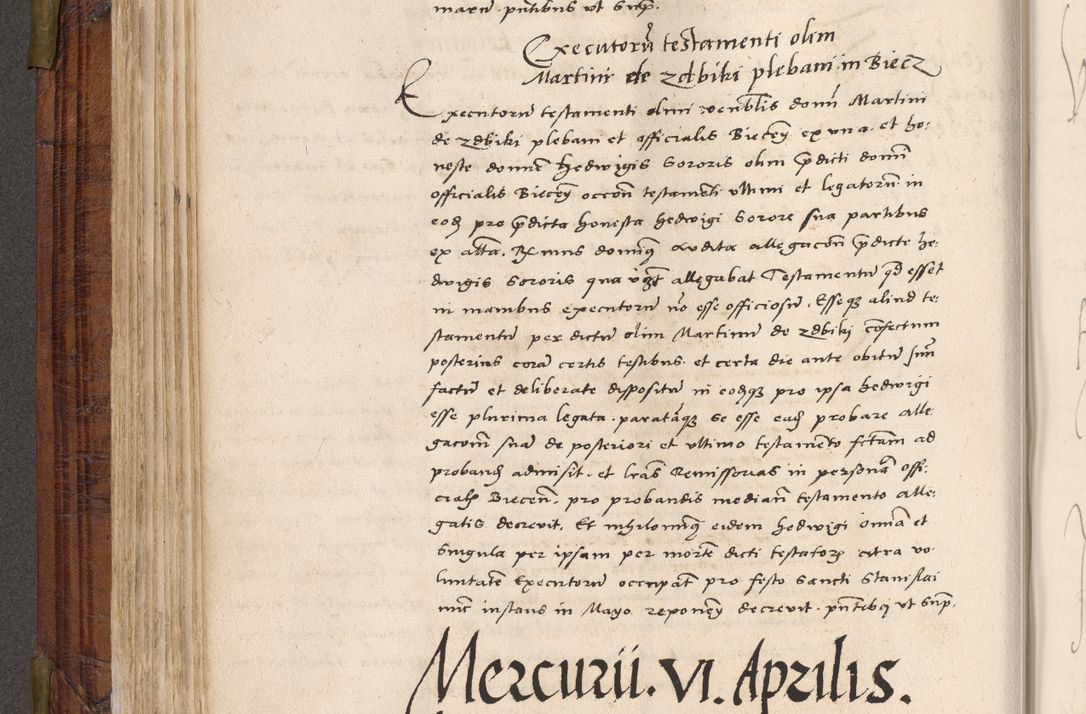 marum pntibus ut supra.
Executorũ testamenti olim
Martini de zdbiki plebani in Biecz
Executorũ testamenti olim venblis domi Martini
de zdbiki plebani et officialis Bieceñ ex una. et ho:
neste domine Hedwigis Sororis olim pdicti domi
officialis Bieceñ occoñ testamenti ultimi et legatorũ in
eod pro pdicta honesta hedwigi Sorore sua partibus
ex alta. Rmus dominus audita allegacoñ pdicte he:
dwigis Sororis qua allegabat Testamentũ qd esset
in manibus executorũ nõ esse officiosũ. Esseq aliud te:
stamentũ per dictũ olim Martinũ de zdbiki confectum
posterius corã certis testibus. et certa die ante obitũ suũ
factũ et deliberate dispositũ in eodq pro ipsa Hedwigi
esse plurima legata. paratãq se esse eadẽ probare alle
gacom suã de posteriori et ultimo testamento fctam ad
probandũ admisit. et lras Remissorias in personã offi:
cialis Bieceñ. pro probandis mediañ testamento alle:
gatis decrevit. Et nihilominq eidem hedwigi omnia et
singula per ipsam per mortẽ dicti testatoris citra vo
luntatẽ Executorũ occupatã pro festo Sancti Stanislai
nunc instans in Mayo reponeñ decrevit. pntibq ut supra.
Mercurii. VI. Aprilis.